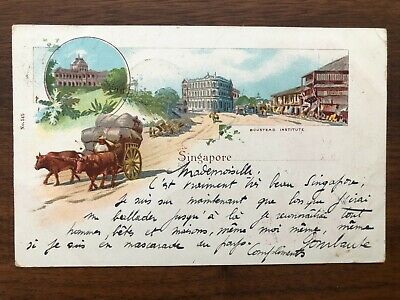 No. 515
BOUSTEAD INSTITUTE
Singapore
Mademoiselle
C'est vraiment très beau Singapore,
je suis sûr maintenant que lorsque j'irai
me ballader jusqu'à là je reconnaîtrai tout
hommes, bêtes et maisons, même moi même, même
si je suis en mascarade du pays.
Compliments